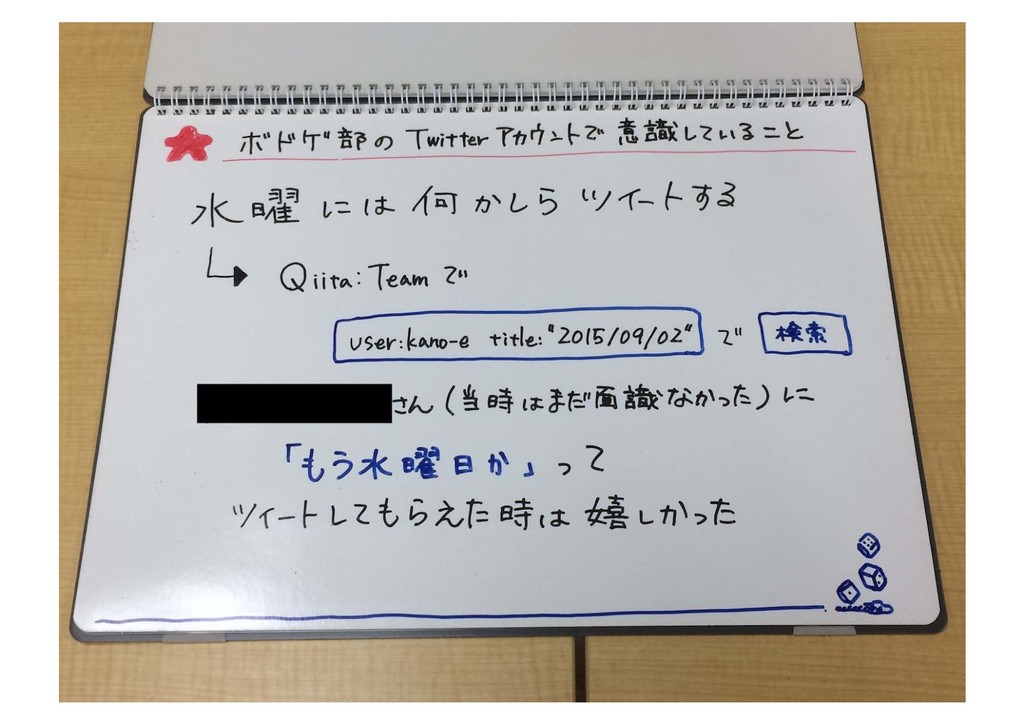 ボドゲ部の Twitter アカウントで 意識していること
水曜には何かしらツイートする
Qiita:Team で
user:kano-e title:"2015/09/02" で 検索
さん(当時はまだ面識なかった)に
「もう水曜日か」って
ツイートしてもらえた時は嬉しかった